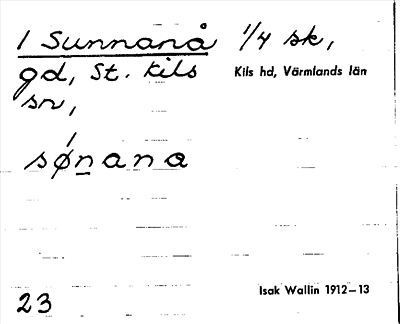 1 Sunnanå 1/4 sk,
gd, St. Kils
Kils hd, Värmlands län
sn,
sǿn̲ana
23
Isak Wallin 1912–13